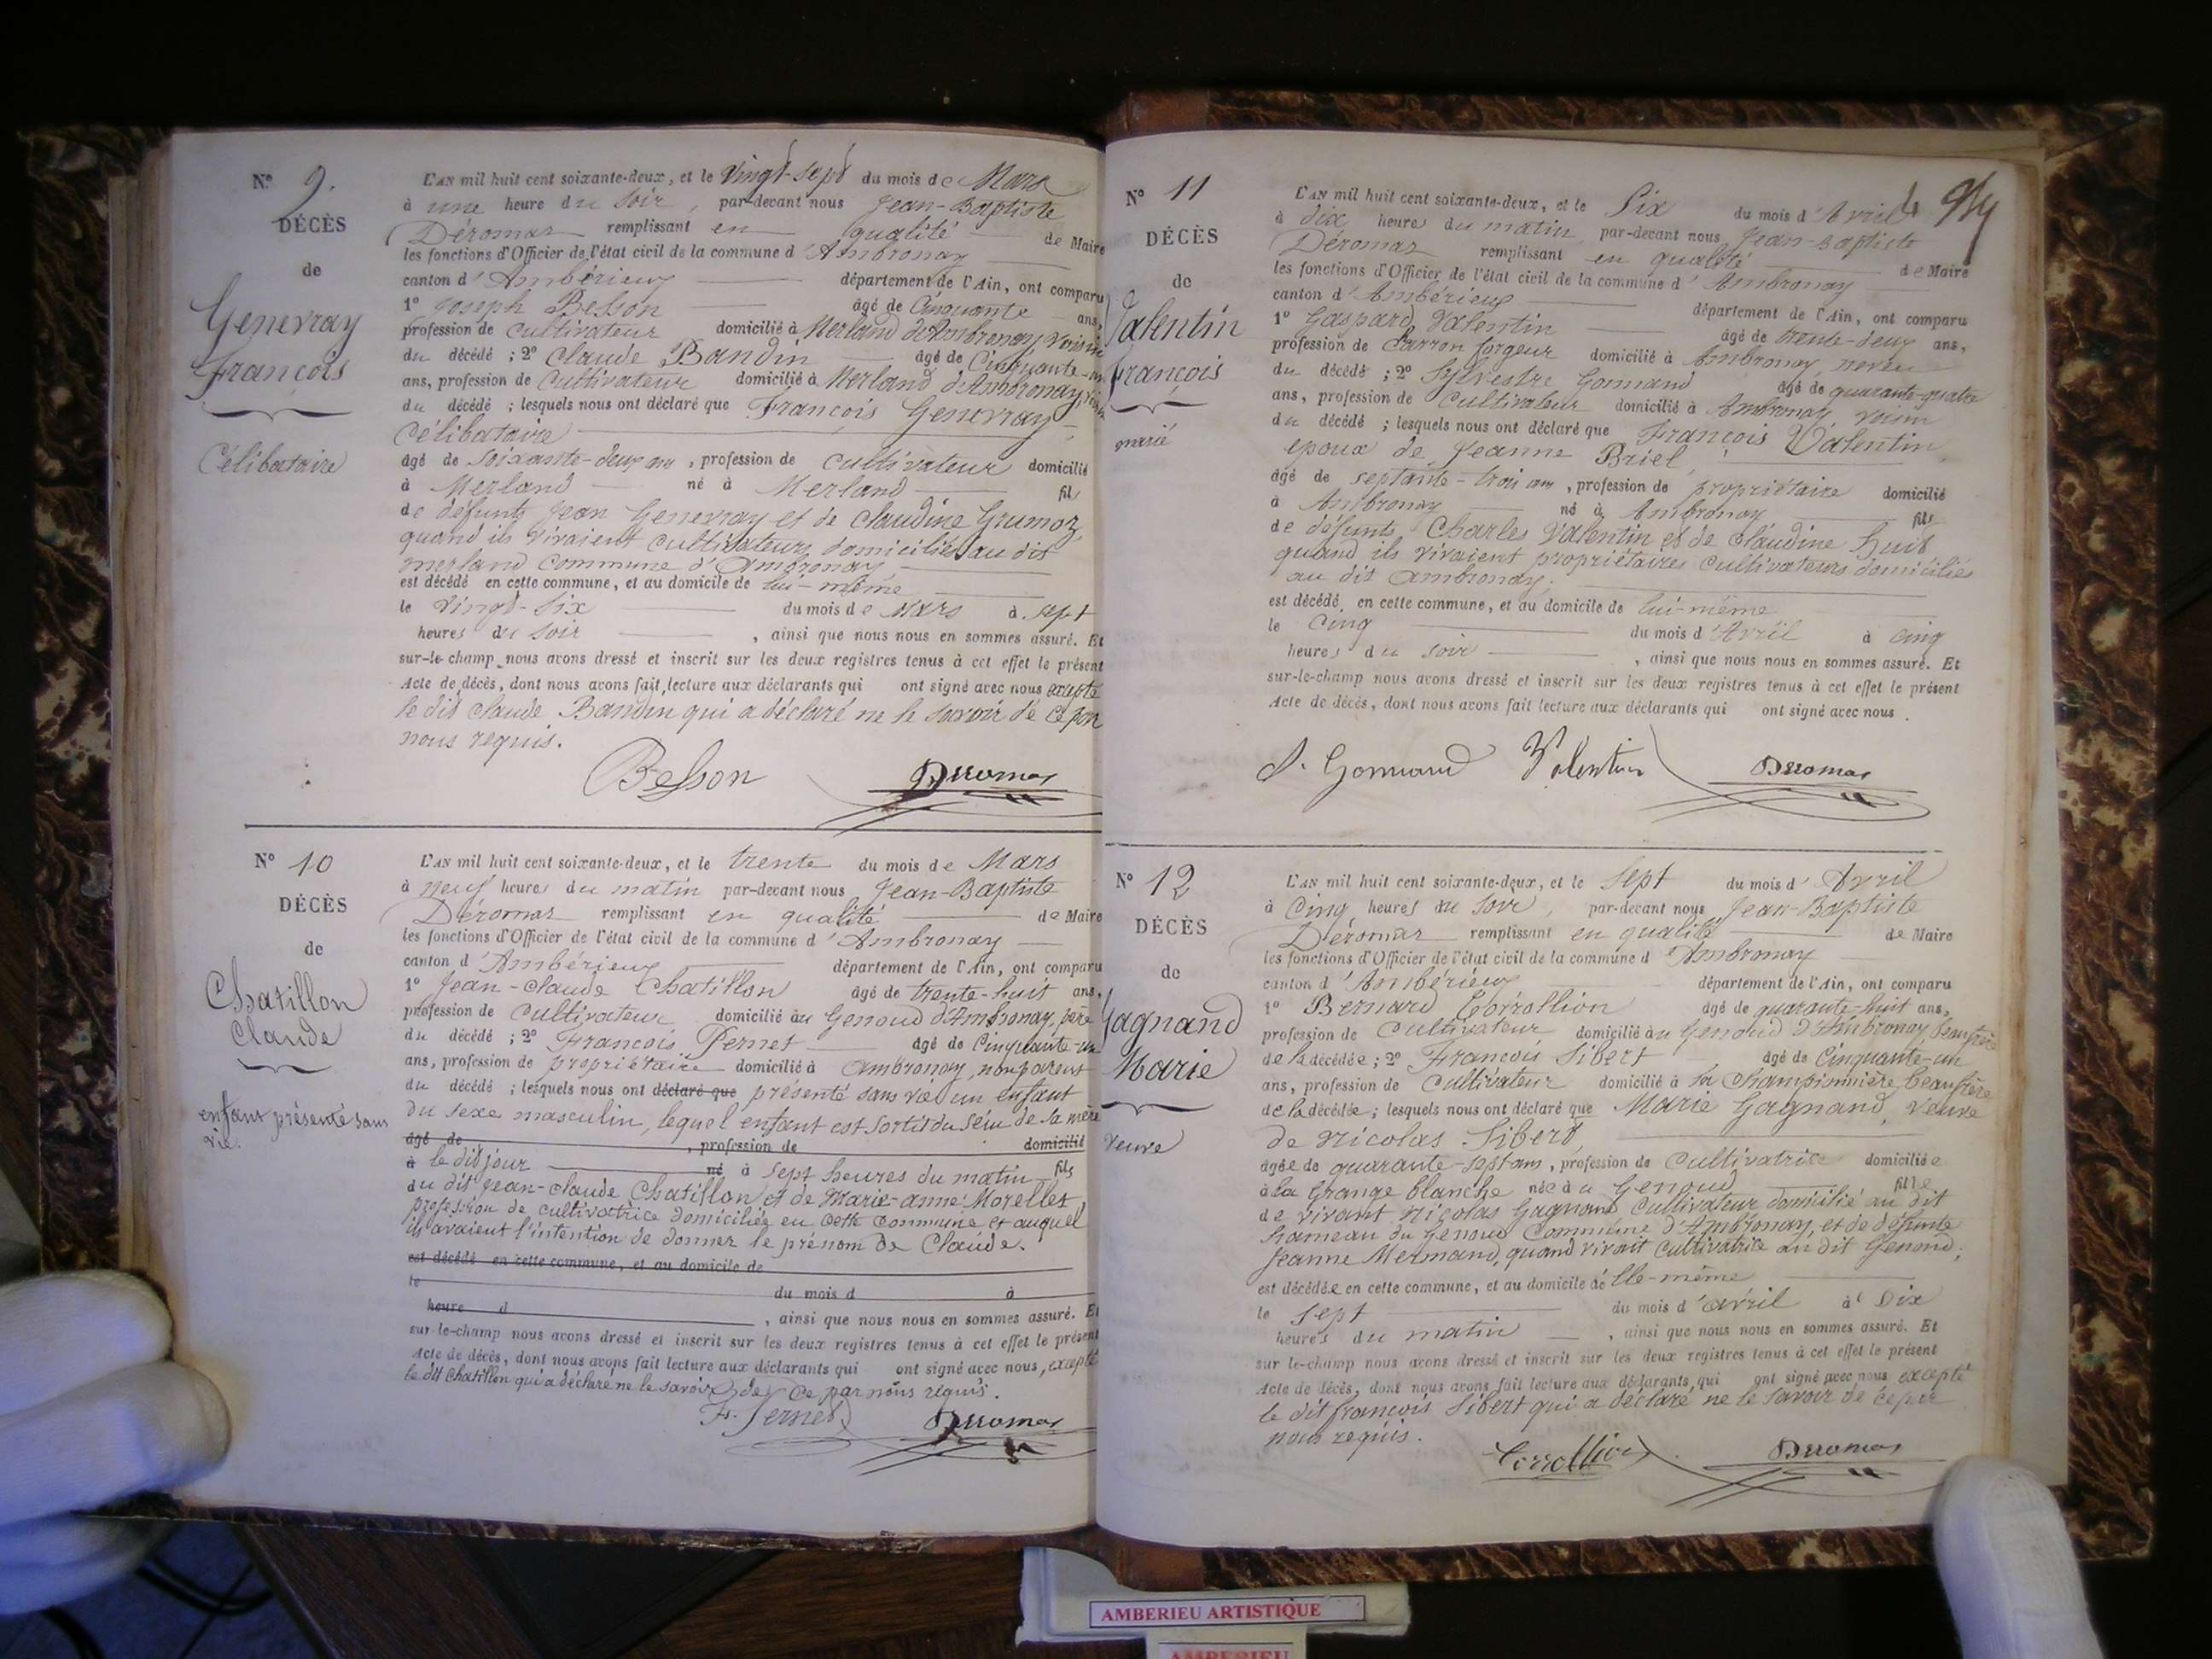 N° 9.
DÉCÈS
de
Genevray
François
Célibataire
L'AN mil huit cent soixante-deux, et le vingt-sept du mois de Mars
à une heure du soir, par-devant nous Jean-Baptiste
Déromas remplissant en qualité de Maire
les fonctions d'Officier de l'état civil de la commune d'Ambronay
canton d'Ambérieux département de l'Ain, ont comparu
1° Joseph Besson âgé de Cinquante ans,
profession de cultivateur domicilié à Merland d'Ambronay, voisin
du décédé ; 2° Claude Bandin âgé de Cinquante-un
ans, profession de Cultivateur domicilié à Merland d'Ambronay,
du décédé ; lesquels nous ont déclaré que François Genevray
Célibataire
âgé de soixante-deux ans, profession de cultivateur domicilié
à Merland né à Merland fils
de défunts Jean Genevray et de Claudine Grumoz,
quand ils vivaient cultivateurs domiciliés au dit
merland commune d'Ambronay
est décédé en cette commune, et au domicile de lui-même
le vingt-six du mois de Mars à sept
heures du soir, ainsi que nous nous en sommes assuré. Et
sur-le-champ nous avons dressé et inscrit sur les deux registres tenus à cet effet le présent
Acte de décès, dont nous avons fait lecture aux déclarants qui ont signé avec nous excepté
le dit Claude Bandin qui a déclaré ne le savoir de ce par
nous requis.
Besson Déromas
N° 10
DÉCÈS
de
Chatillon
Claude
enfant présenté sans
vie.
L'AN mil huit cent soixante-deux, et le trente du mois de Mars
à neuf heures du matin par-devant nous Jean-Baptiste
Déromas remplissant en qualité de Maire
les fonctions d'Officier de l'état civil de la commune d'Ambronay
canton d'Ambérieux département de l'Ain, ont comparu
1° Jean-Claude Chatillon âgé de trente-huit ans,
profession de cultivateur domicilié au Genoud d'Ambronay, père
du décédé ; 2° François Pernet âgé de Cinquante-un
ans, profession de propriétaire domicilié à Ambronay, non parent
du décédé ; lesquels nous ont déclaré que présenté sans vie un enfant
du sexe masculin, lequel enfant est sorti du sein de sa mère
âgé de, profession de domicilié
à le dit jour né à sept heures du matin fils
du dit Jean-Claude Chatillon et de Marie-anne Morelles,
profession de cultivatrice domiciliée en cette commune et auquel
ils avaient l'intention de donner le prénom de Claude.
est décédé en cette commune, et au domicile de
le du mois d à
heure d, ainsi que nous nous en sommes assuré. Et
sur-le-champ nous avons dressé et inscrit sur les deux registres tenus à cet effet le présent
Acte de décès, dont nous avons fait lecture aux déclarants qui ont signé avec nous, excepté
le dit Chatillon qui a déclaré ne le savoir de ce par nous requis.
F. Pernet Déromas
N° 11
DÉCÈS
de
Valentin
François
marié
L'AN mil huit cent soixante-deux, et le Six du mois d'Avril
à dix heures du matin par-devant nous Jean-Baptiste
Déromas remplissant en qualité de Maire
les fonctions d'Officier de l'état civil de la commune d'Ambronay
canton d'Ambérieux département de l'Ain, ont comparu
1° Gaspard Valentin âgé de trente-deux ans,
profession de Carron forgeur domicilié à Ambronay, neveu
du décédé ; 2° Sylvestre Gonnand âgé de quarante-quatre
ans, profession de Cultivateur domicilié à Ambronay, voisin
du décédé ; lesquels nous ont déclaré que François Valentin
époux de Jeanne Briel,
âgé de septante-trois ans, profession de propriétaire domicilié
à Ambronay né à Ambronay fils
de défunts Charles Valentin et de Claudine Huit
quand ils vivaient propriétaires cultivateurs domiciliés
au dit Ambronay.
est décédé en cette commune, et au domicile de lui-même
le Cinq du mois d'Avril à cinq
heures du soir, ainsi que nous nous en sommes assuré. Et
sur-le-champ nous avons dressé et inscrit sur les deux registres tenus à cet effet le présent
Acte de décès, dont nous avons fait lecture aux déclarants qui ont signé avec nous.
S. Gonnand Valentin Déromas
N° 12
DÉCÈS
de
Gagnand
Marie
veuve
L'AN mil huit cent soixante-deux, et le Sept du mois d'Avril
à Cinq heures du soir, par-devant nous Jean-Baptiste
Déromas remplissant en qualité de Maire
les fonctions d'Officier de l'état civil de la commune d'Ambronay
canton d'Ambérieux département de l'Ain, ont comparu
1° Bernard Corrollion âgé de quarante-huit ans,
profession de Cultivateur domicilié au Genoud d'Ambronay, beaufrère
de la décédée ; 2° François Sibert âgé de Cinquante-un
ans, profession de Cultivateur domicilié à la Championnière, beaufrère
de la décédée ; lesquels nous ont déclaré que Marie Gagnand, veuve
de Nicolas Sibert,
âgée de quarante-sept ans, profession de Cultivatrice domiciliée
à la Grange blanche née au Genoud fille
de vivant Nicolas Gagnand Cultivateur domicilié au dit
hameau du Genoud Commune d'Ambronay, et de défunte
Jeanne Mermand, quand vivait cultivatrice au dit Genoud,
est décédée en cette commune, et au domicile de Elle-même
le Sept du mois d'avril à Dix
heures du matin, ainsi que nous nous en sommes assuré. Et
sur-le-champ nous avons dressé et inscrit sur les deux registres tenus à cet effet le présent
Acte de décès, dont nous avons fait lecture aux déclarants qui ont signé avec nous excepté
le dit françois Sibert qui a déclaré ne le savoir de ce par
nous requis.
Corrollion Déromas
AMBERIEU ARTISTIQUE
AMBERIEU